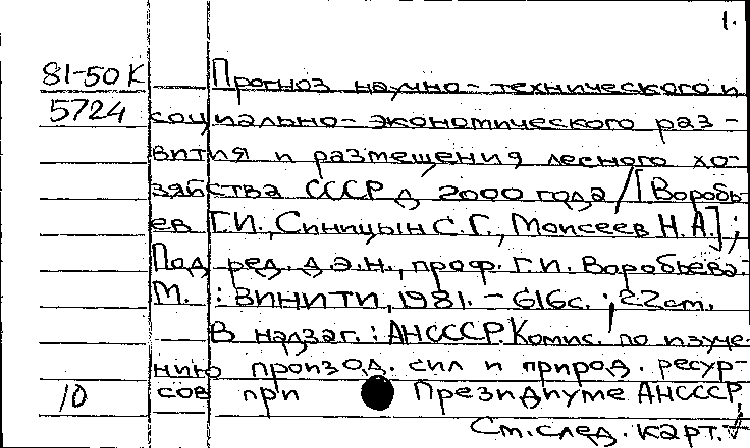 1.
81-50К Прогноз научно-технического и
5724 социально-экономического раз-
вития и размещения лесного хо-
зяйства СССР д 2000 года / [Воробь-
ев Г.И., Синицын С.Г., Моисеев Н.А.];
Под ред. д.э.н., проф. Г.И. Воробьева.-
М. : ВИНИТИ, 1981. - 616с. ; 22см.
В надзаг. : АНСССР. Комис. по изуче-
нию производ. сил и природ. ресур-
10 сов при Президиуме АНСССР.
См. след. карт.